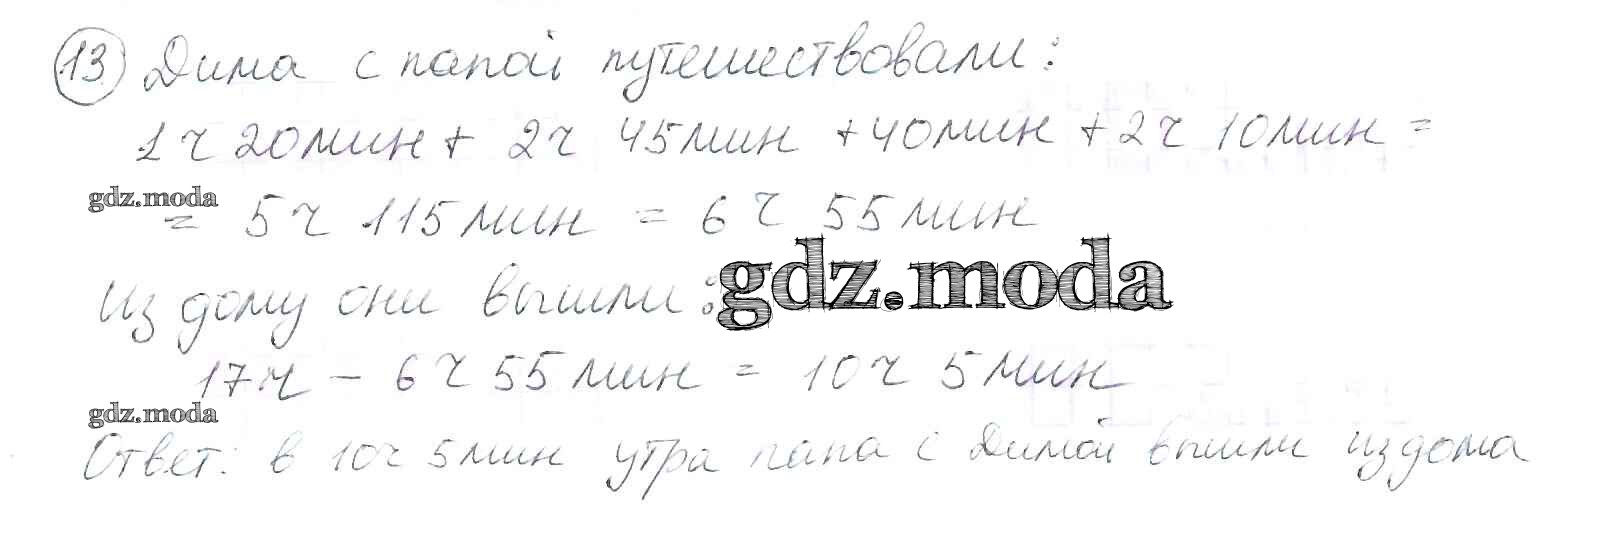 13 Дима с папой путешествовали:
1ч 20мин + 2ч 45мин + 40мин + 2ч 10мин =
gdz.moda
= 5ч 115мин = 6ч 55мин
Из дому они вышли:
gdz.moda
17ч - 6ч 55мин = 10ч 5мин
gdz.moda
Ответ: в 10ч 5мин утра папа с Димой вышли из дома